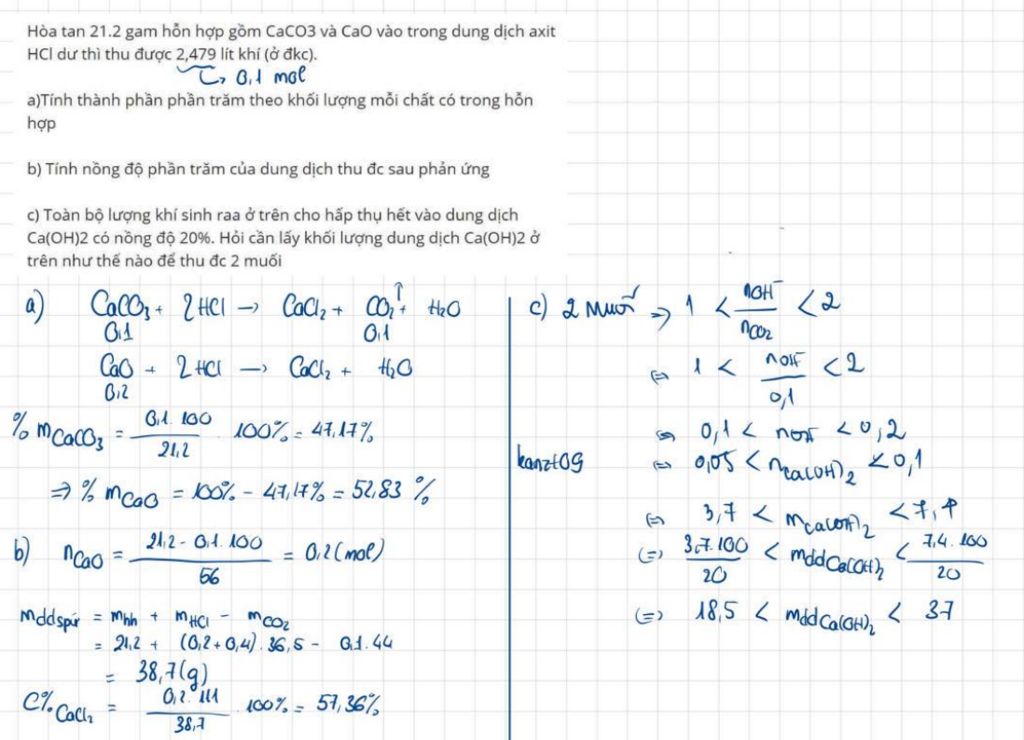 Hòa tan 21.2 gam hỗn hợp gồm CaCO3 và CaO vào trong dung dịch axit
HCl dư thì thu được 2,479 lít khí (ở đkc).
↳ 0,1 mol
a)Tính thành phần phần trăm theo khối lượng mỗi chất có trong hỗn
hợp
b) Tính nồng độ phần trăm của dung dịch thu đc sau phản ứng
c) Toàn bộ lượng khí sinh raa ở trên cho hấp thụ hết vào dung dịch
Ca(OH)2 có nồng độ 20%. Hỏi cần lấy khối lượng dung dịch Ca(OH)2 ở
trên như thế nào để thu đc 2 muối
a) CaCO₃ + 2HCl → CaCl₂ + CO₂↑ + H₂O
0,1 0,1
CaO + 2HCl → CaCl₂ + H₂O
0,2
% mCaCO₃ = 0,1.100 / 21,2 . 100% = 47,17%
⇒ % mCaO = 100% - 47,17% = 52,83 %
b) nCaO = 21,2 - 0,1.100 / 56 = 0,2 (mol)
mddspư = mhh + mHCl - mCO₂
= 21,2 + (0,2+0,4).36,5 - 0,1.44
= 38,7(g)
C%CaCl₂ = 0,2.111 / 38,7 . 100% = 57,36%
c) 2 muối ⇒ 1 < nOH⁻ / nCO₂ < 2
⇔ 1 < nOH⁻ / 0,1 < 2
⇔ 0,1 < nOH⁻ < 0,2
kanzt09
⇔ 0,05 < nCa(OH)₂ < 0,1
⇔ 3,7 < mCa(OH)₂ < 7,4
⇔ 3,7.100 / 20 < mddCa(OH)₂ < 7,4.100 / 20
⇔ 18,5 < mddCa(OH)₂ < 37